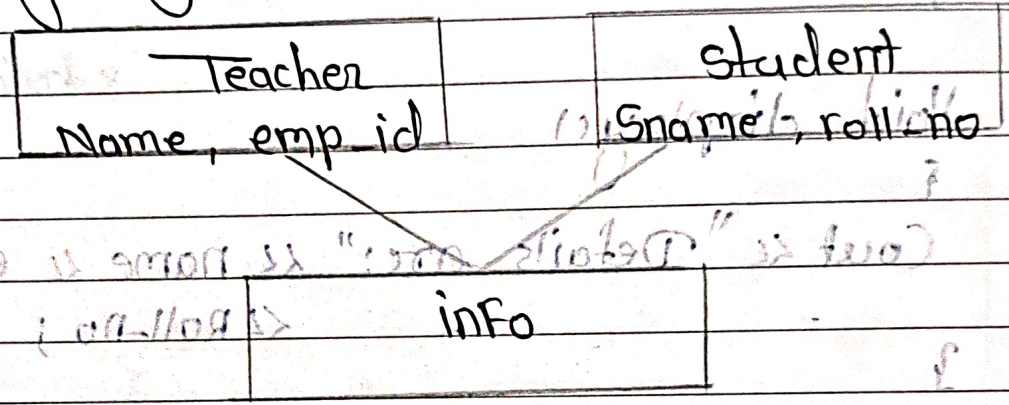 Teacher
Name, emp_id
Student
Sname, roll-no
info